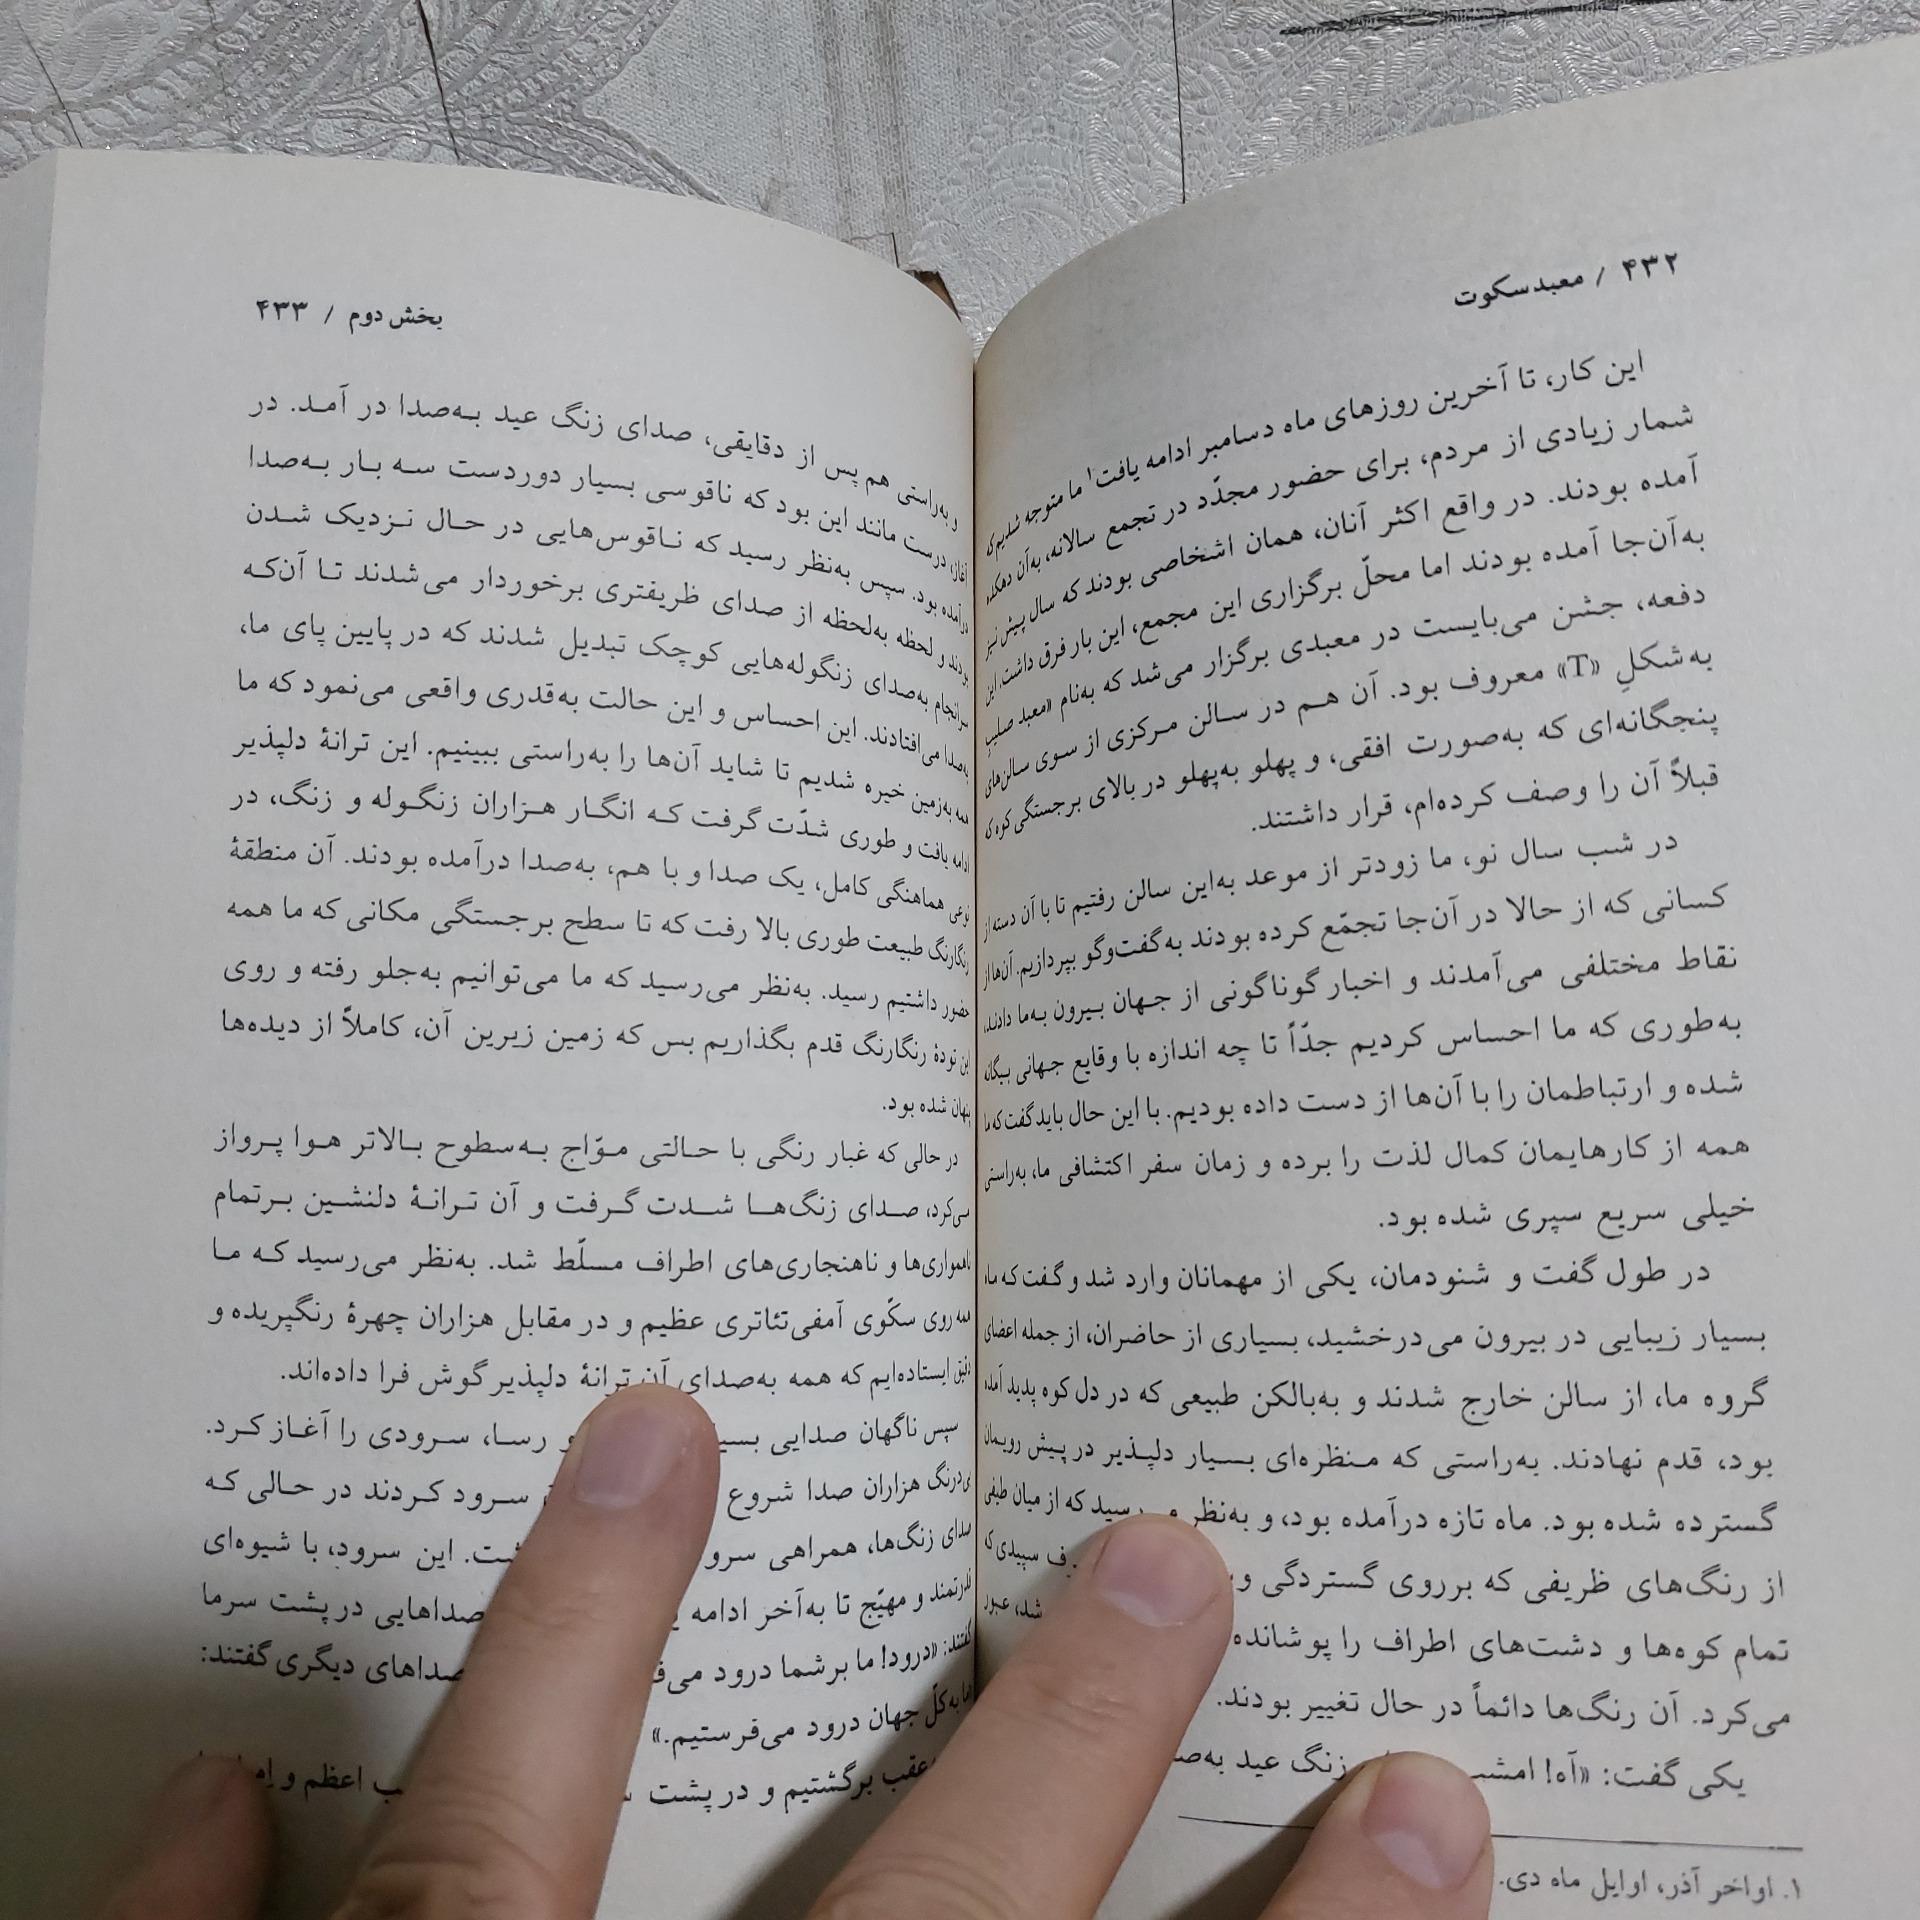 ۴۳۲ / معبد سکوت
این کار، تا آخرین روزهای ماه دسامبر ادامه یافت۱ ما متوجه شدیم که
شمار زیادی از مردم، برای حضور مجدّد در تجمع سالانه، به‌آن دهکده
آمده بودند. در واقع اکثر آنان، همان اشخاصی بودند که سال پیش نیز
به‌آن‌جا آمده بودند اما محلّ برگزاری این مجمع، این بار فرق داشت. این
دفعه، جشن می‌بایست در معبدی برگزار می‌شد که به‌نام «معبد صلیبِ
به‌شکلِ «T» معروف بود. آن هم در سالن مرکزی از سوی سالن‌های
پنجگانه‌ای که به‌صورت افقی، و پهلو به‌پهلو در بالای برجستگی کوه که
قبلاً آن را وصف کرده‌ام، قرار داشتند.
در شب سال نو، ما زودتر از موعد به‌این سالن رفتیم تا با آن دسته از
کسانی که از حالا در آن‌جا تجمّع کرده بودند به‌گفت‌وگو بپردازیم. آن‌ها از
نقاط مختلفی می‌آمدند و اخبار گوناگونی از جهان بیرون به‌ما دادند،
به‌طوری که ما احساس کردیم جدّاً تا چه اندازه با وقایع جهانی بیگانه
شده و ارتباطمان را با آن‌ها از دست داده بودیم. با این حال باید گفت که ما
همه از کارهایمان کمال لذت را برده و زمان سفر اکتشافی ما، به‌راستی
خیلی سریع سپری شده بود.
در طول گفت و شنودمان، یکی از مهمانان وارد شد و گفت که ماه
بسیار زیبایی در بیرون می‌درخشید، بسیاری از حاضران، از جمله اعضای
گروه ما، از سالن خارج شدند و به‌بالکن طبیعی که در دل کوه پدید آمده
بود، قدم نهادند. به‌راستی که منظره‌ای بسیار دلپذیر در پیش رویمان
گسترده شده بود. ماه تازه درآمده بود، و به‌نظر رسید که از میان طیفی
از رنگ‌های ظریفی که برروی گستردگی سپیدی که
تمام کوه‌ها و دشت‌های اطراف را پوشانده شد، عبور
می‌کرد. آن رنگ‌ها دائماً در حال تغییر بودند.
یکی گفت: «آه! زنگ عید
۱. اواخر آذر، اوایل ماه دی.
بخش دوم / ۴۳۳
و به‌راستی هم پس از دقایقی، صدای زنگ عید به‌صدا در آمد. در
آغاز، درست مانند این بود که ناقوسی بسیار دوردست سه بار به‌صدا
درآمده بود. سپس به‌نظر رسید که ناقوس‌هایی در حال نزدیک شدن
بودند و لحظه به‌لحظه از صدای ظریفتری برخوردار می‌شدند تا آن‌که
سرانجام به‌صدای زنگوله‌هایی کوچک تبدیل شدند که در پایین پای ما،
به‌صدا می‌افتادند. این احساس و این حالت به‌قدری واقعی می‌نمود که ما
همه به‌زمین خیره شدیم تا شاید آن‌ها را به‌راستی ببینیم. این ترانهٔ دلپذیر
ادامه یافت و طوری شدّت گرفت که انگار هزاران زنگوله و زنگ، در
نوعی هماهنگی کامل، یک صدا و با هم، به‌صدا درآمده بودند. آن منطقهٔ
رنگارنگ طبیعت طوری بالا رفت که تا سطح برجستگی مکانی که ما همه
حضور داشتیم رسید. به‌نظر می‌رسید که ما می‌توانیم به‌جلو رفته و روی
این تودهٔ رنگارنگ قدم بگذاریم بس که زمین زیرین آن، کاملاً از دیده‌ها
پنهان شده بود.
در حالی که غبار رنگی با حالتی موّاج به‌سطوح بالاتر هوا پرواز
می‌کرد، صدای زنگ‌ها شدت گرفت و آن ترانهٔ دلنشین برتمام
ناهمواری‌ها و ناهنجاری‌های اطراف مسلّط شد. به‌نظر می‌رسید که ما
همه روی سکّوی آمفی‌تئاتری عظیم و در مقابل هزاران چهرهٔ رنگپریده و
دقیق ایستاده‌ایم که همه به‌صدای آن ترانهٔ دلپذیر گوش فرا داده‌اند.
سپس ناگهان صدایی و رسا، سرودی را آغاز کرد.
بی‌درنگ هزاران صدا شروع سرود کردند در حالی که
صدای زنگ‌ها، همراهی این سرود، با شیوه‌ای
قدرتمند و مهیّج تا به‌آخر ادامه صداهایی در پشت سرما
گفتند: «درود! ما برشما درود صداهای دیگری گفتند:
ما به‌کلّ جهان درود می‌فرستیم.»
عقب برگشتیم و در پشت اعظم و